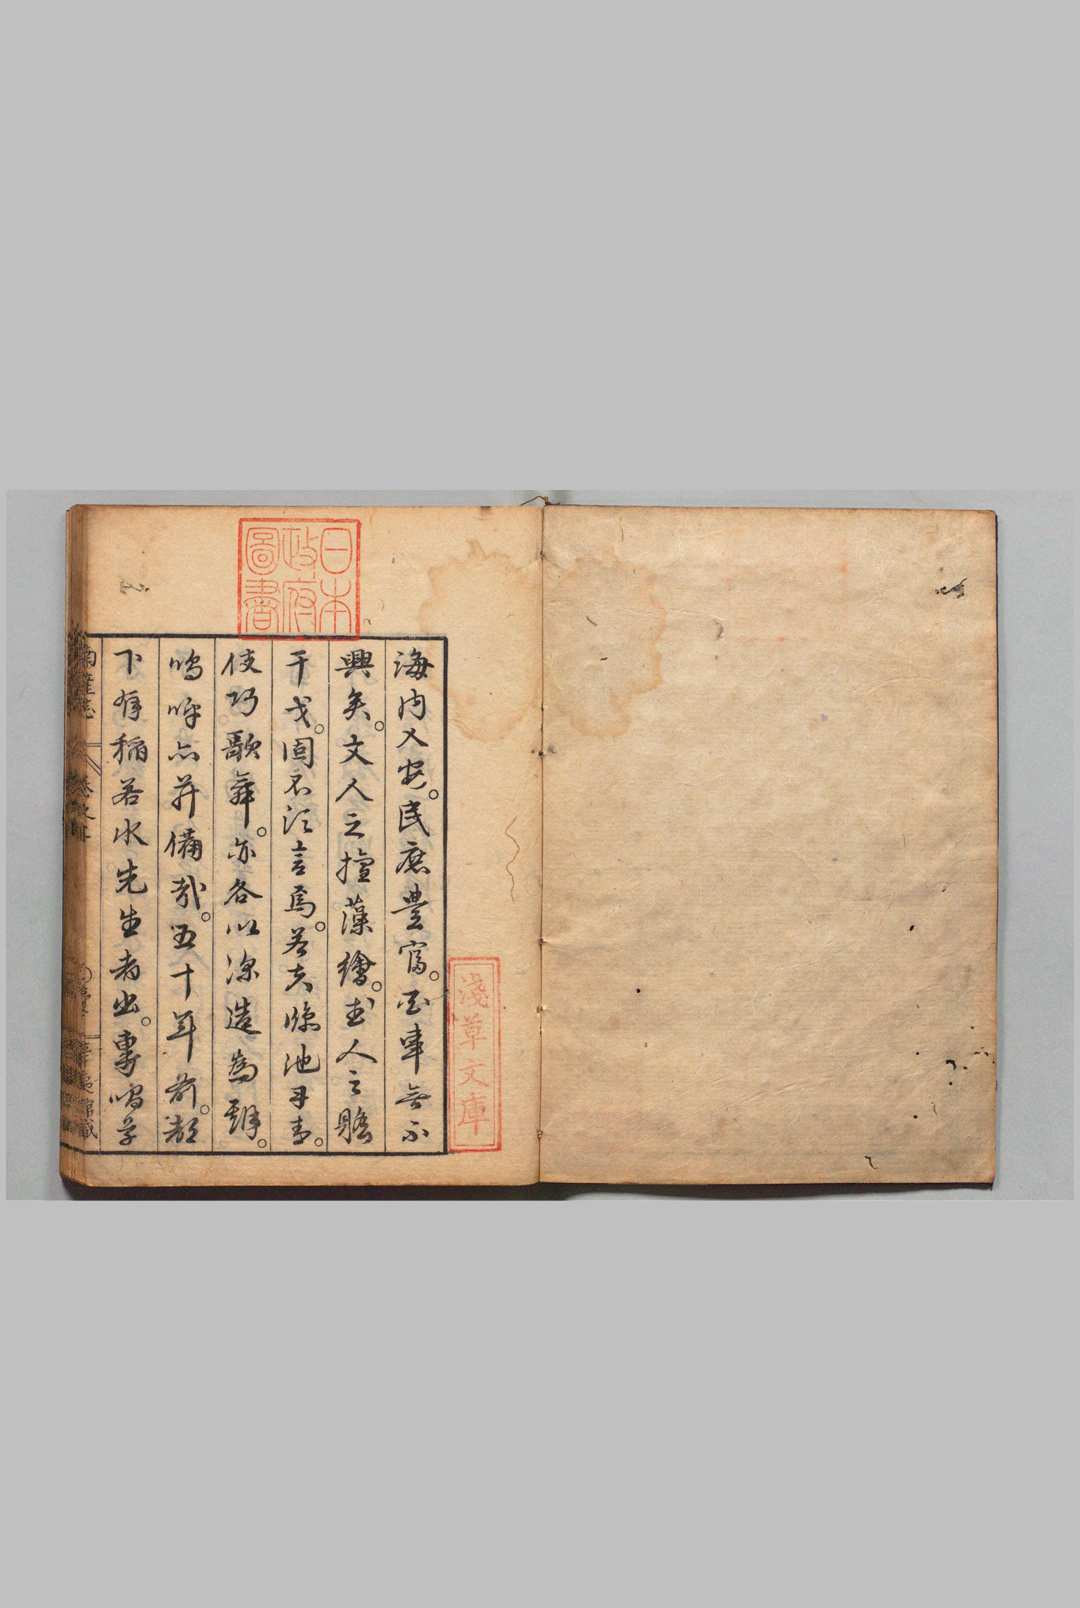 日本政府圖書
淺草文庫
海内乂安。民庶豊富。百事無不
興矣。文人之擅藻繪。武人之
干戈。固不須言焉。若夫臨池丹青。
伎巧歌舞。亦各以深造為
嗚呼亦備哉。五十年前。都
下有稲若水先生者出。專唱草